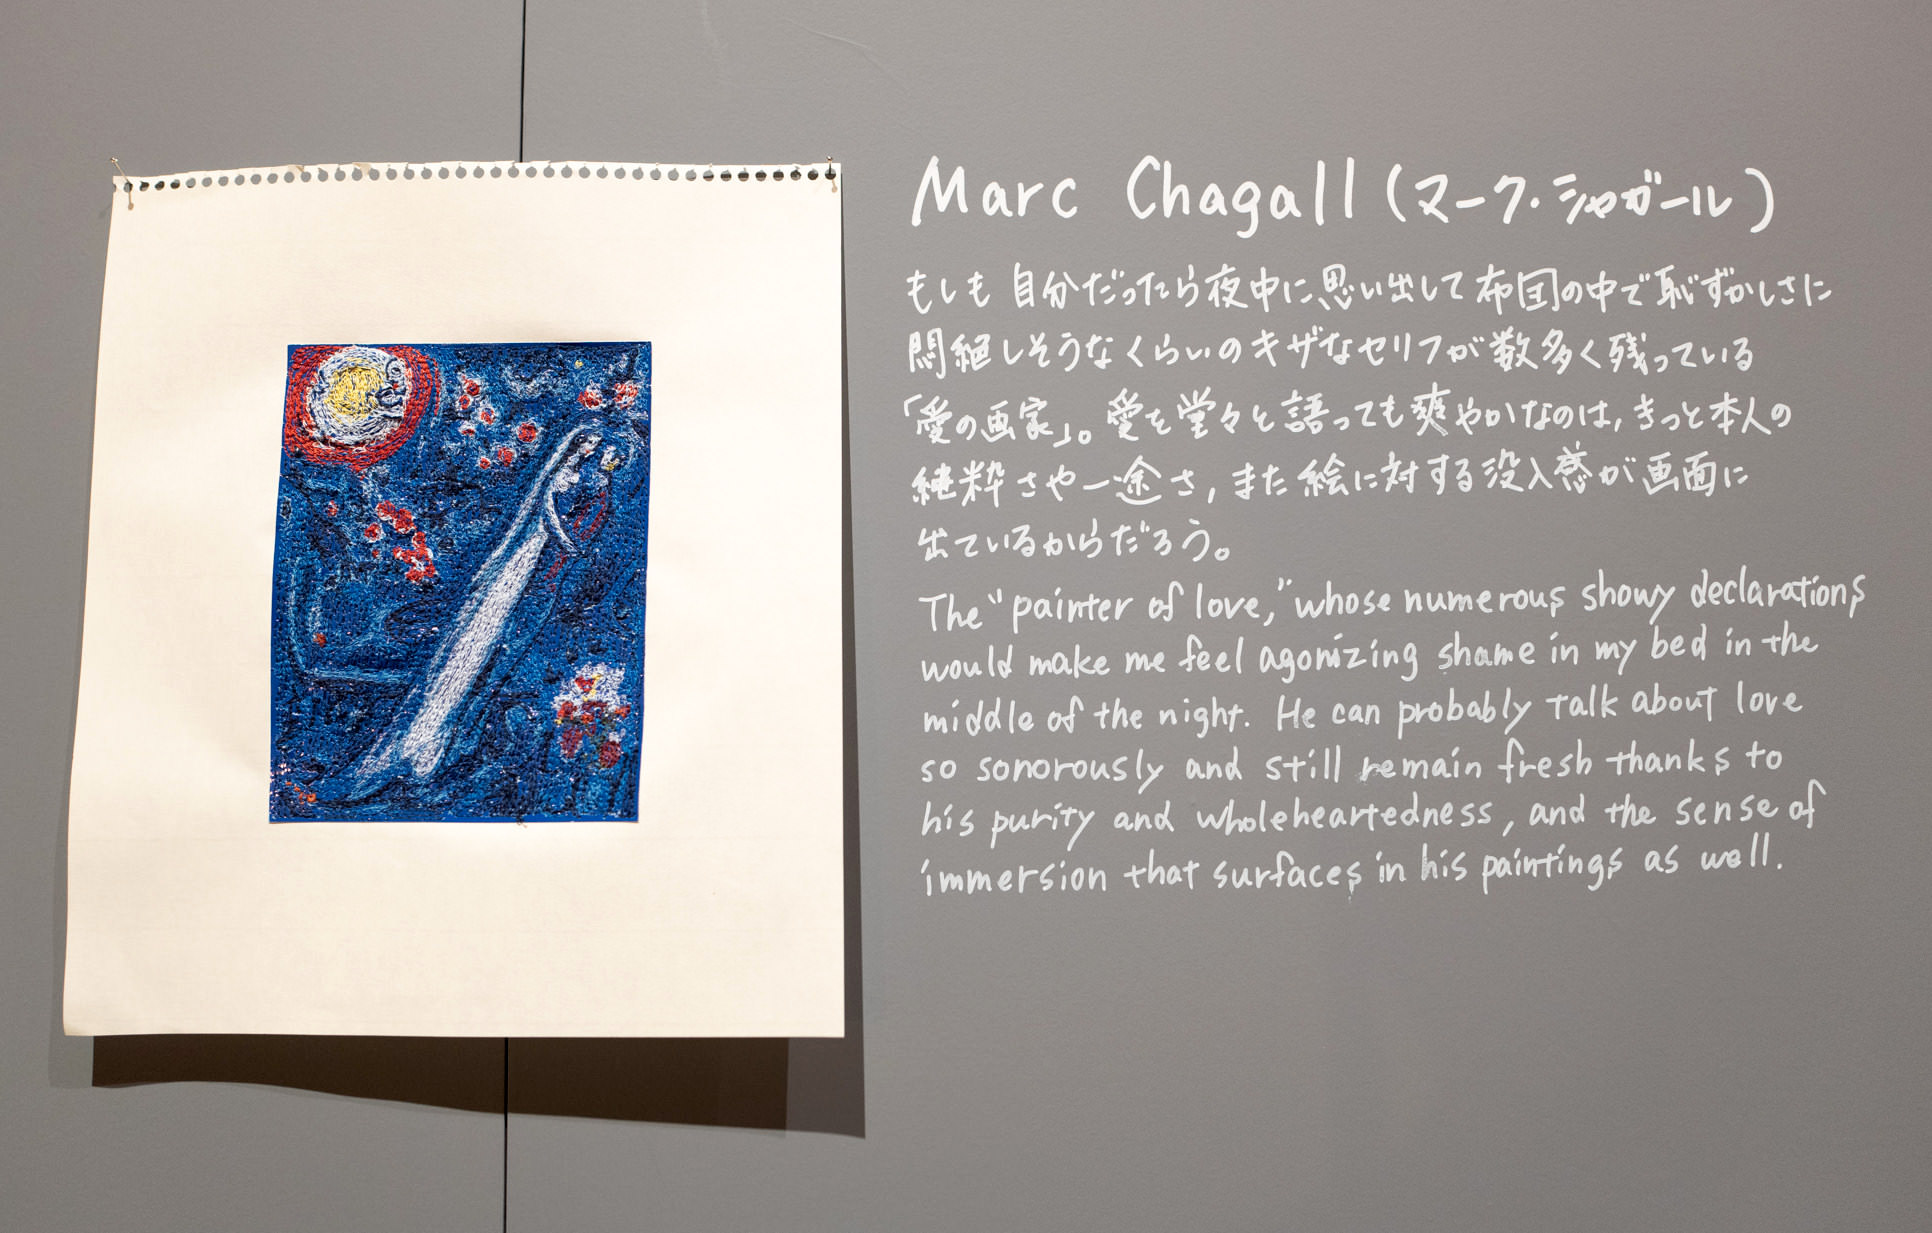 Marc Chagall (マーク・シャガール)
もしも自分だったら夜中に思い出して布団の中で恥ずかしさに
悶絶しそうなくらいのキザなセリフが数多く残っている
「愛の画家」。愛を堂々と語っても爽やかなのは,きっと本人の
純粋さや一途さ,また絵に対する没入感が画面に
出ているからだろう。
The "painter of love," whose numerous showy declarations
would make me feel agonizing shame in my bed in the
middle of the night. He can probably talk about love
so sonorously and still remain fresh thanks to
his purity and wholeheartedness, and the sense of
immersion that surfaces in his paintings as well.